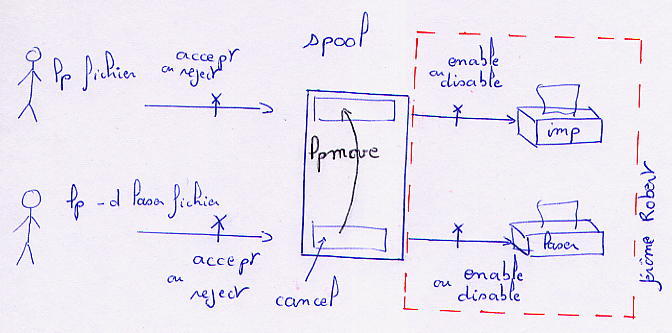 spool
accept
ou reject
enable
ou disable
lp fichier
imp
lpmove
lp -d laser fichier
accept
ou
reject
cancel
laser
ou enable
disable
Jérôme Robert